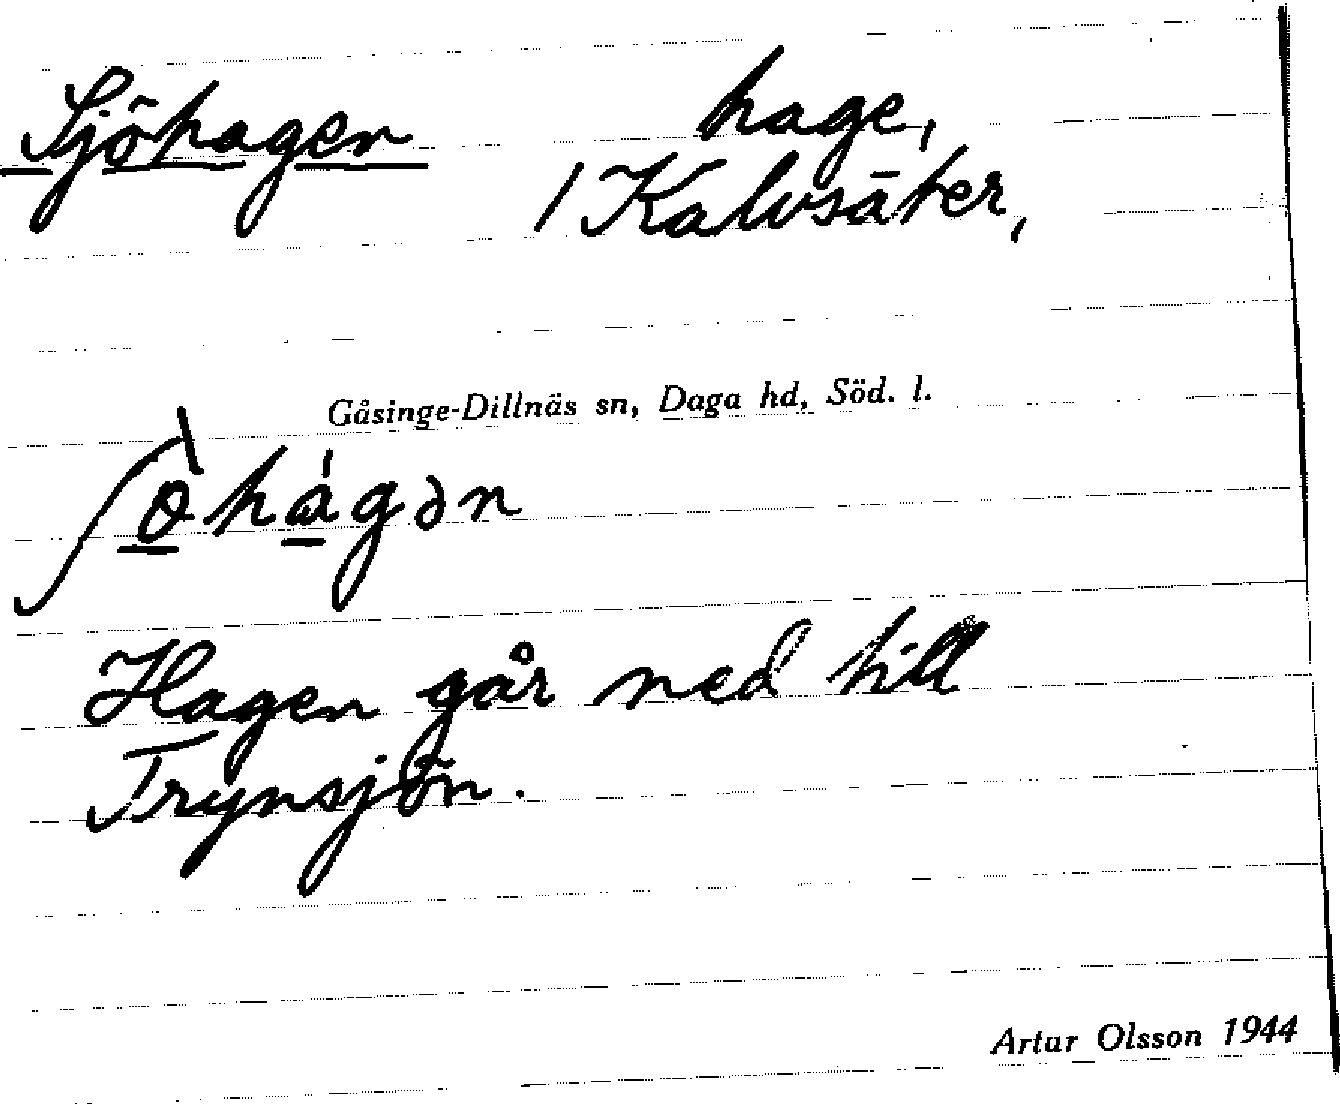 Sjöhagen hage,
/ Kalvsäter,
Gåsinge-Dillnäs sn, Daga hd, Söd. l.
ʃòhàgən
Hagen går ned till
Trynsjön.
Artur Olsson 1944